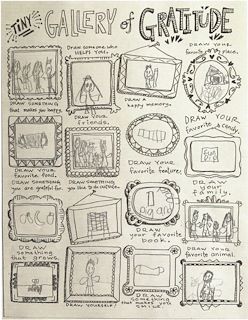 TINY GALLERY of GRATITUDE
DRAW someone who HELPS YOU.
DRAW YOUR favorite place.
DRAW SOMETHING that makes you happy.
DRAW YOUR friends.
DRAW A happy memory.
DRAW YOUR favorite candy.
DRAW YOUR favorite food.
DRAW SOMETHING you are grateful for.
DRAW SOMETHING you like to do outside.
DRAW YOUR favorite feature.
DRAW YOUR family.
DRAW Something that grows.
DRAW YOURSELF.
DRAW your favorite book.
DRAW Something that makes you SMILE.
DRAW your favorite animal.